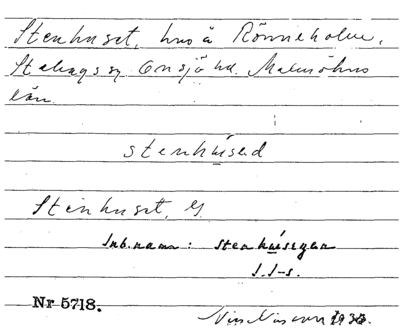 Stenhuset, hus å Rönneholm,
Stehags sn Onsjö hd. Malmöhus
län.
stenhúsed
Stenhuset, g
Inb.namn: stenhúsegan
J.J-s.
Nr 5718.
Nils Nilsson